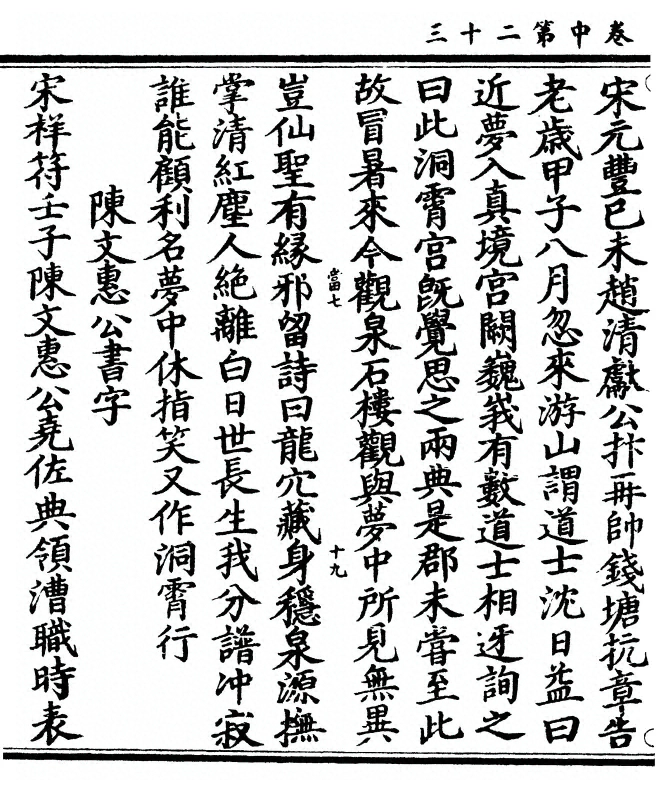 卷中第二十三
宋元豐已未趙清獻公抃再帥錢塘抗章告
老歲甲子八月忽來游山謂道士沈日益曰
近夢入真境宮闕巍峩有數道士相迓詢之
曰此洞霄宮旣覺思之兩典是郡未嘗至此
故冒暑來今觀泉石樓觀與夢中所見無異
當七
十九
豈仙聖有緣邪留詩曰龍穴藏身穩泉源撫
掌清紅塵人絶離白日世長生我分譜冲寂
誰能顧利名夢中休指笑又作洞霄行
陳文惠公書字
宋祥符壬子陳文惠公堯佐典領漕職時表